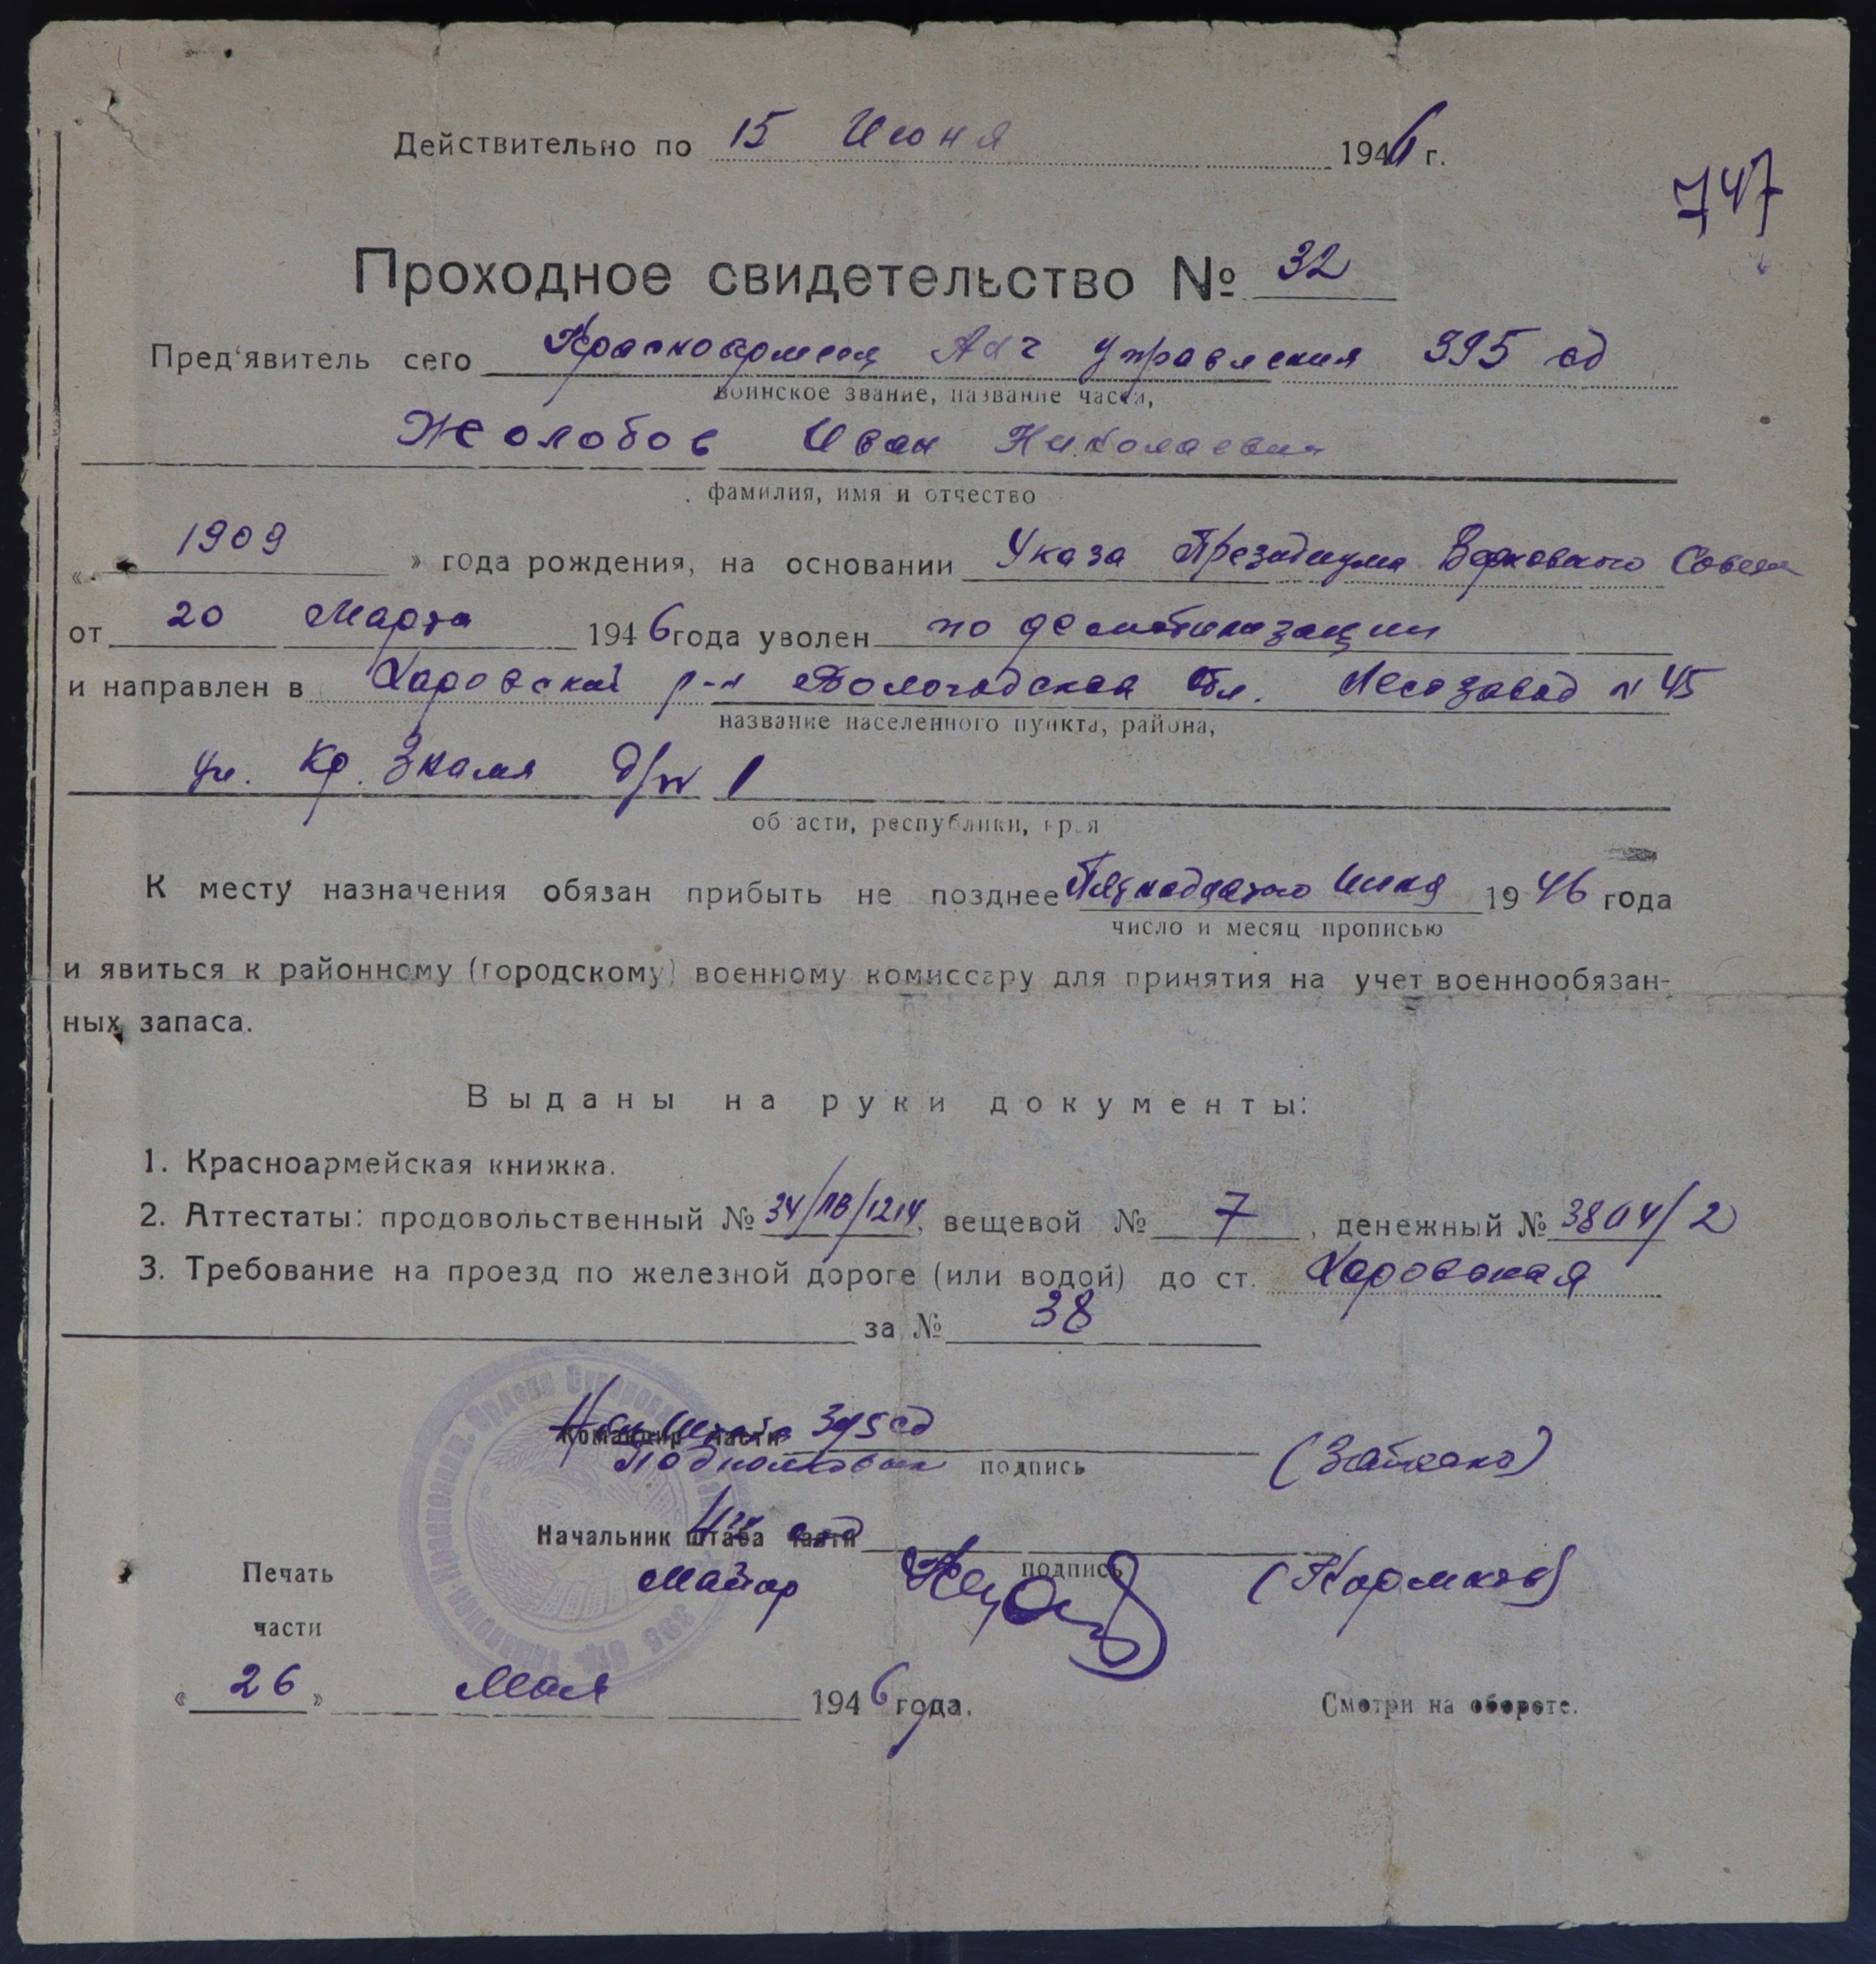 Действительно по 15 Июня 1946 г.
747
Проходное свидетельство № 32
Пред'явитель сего Красноармеец АХЧ управления 395 сд
воинское звание, название части,
Жолобов Иван Николаевич
фамилия, имя и отчество
« 1909 » года рождения, на основании Указа Президиума Верховного Совета
от 20 Марта 1946 года уволен по демобилизации
и направлен в Харовский р-н Вологодская обл. Лесозавод № 45
название населенного пункта, района,
ул. Кр. Знамя д/№ 1
области, республики, края
К месту назначения обязан прибыть не позднее Пятнадцатого Июня 1946 года
число и месяц прописью
и явиться к районному (городскому) военному комиссару для принятия на учет военнообязан-
ных запаса.
Выданы на руки документы:
1. Красноармейская книжка.
2. Аттестаты: продовольственный № 34/ПВ/1214, вещевой № 7, денежный № 3804/2
3. Требование на проезд по железной дороге (или водой) до ст. Харовская
за № 38
Нач. Штаба 395 сд
Командир части
Подполковник подпись
Начальник штаба части
подпись
Майор
Печать
части
« 26 » Мая 1946 года.
Смотри на обороте.